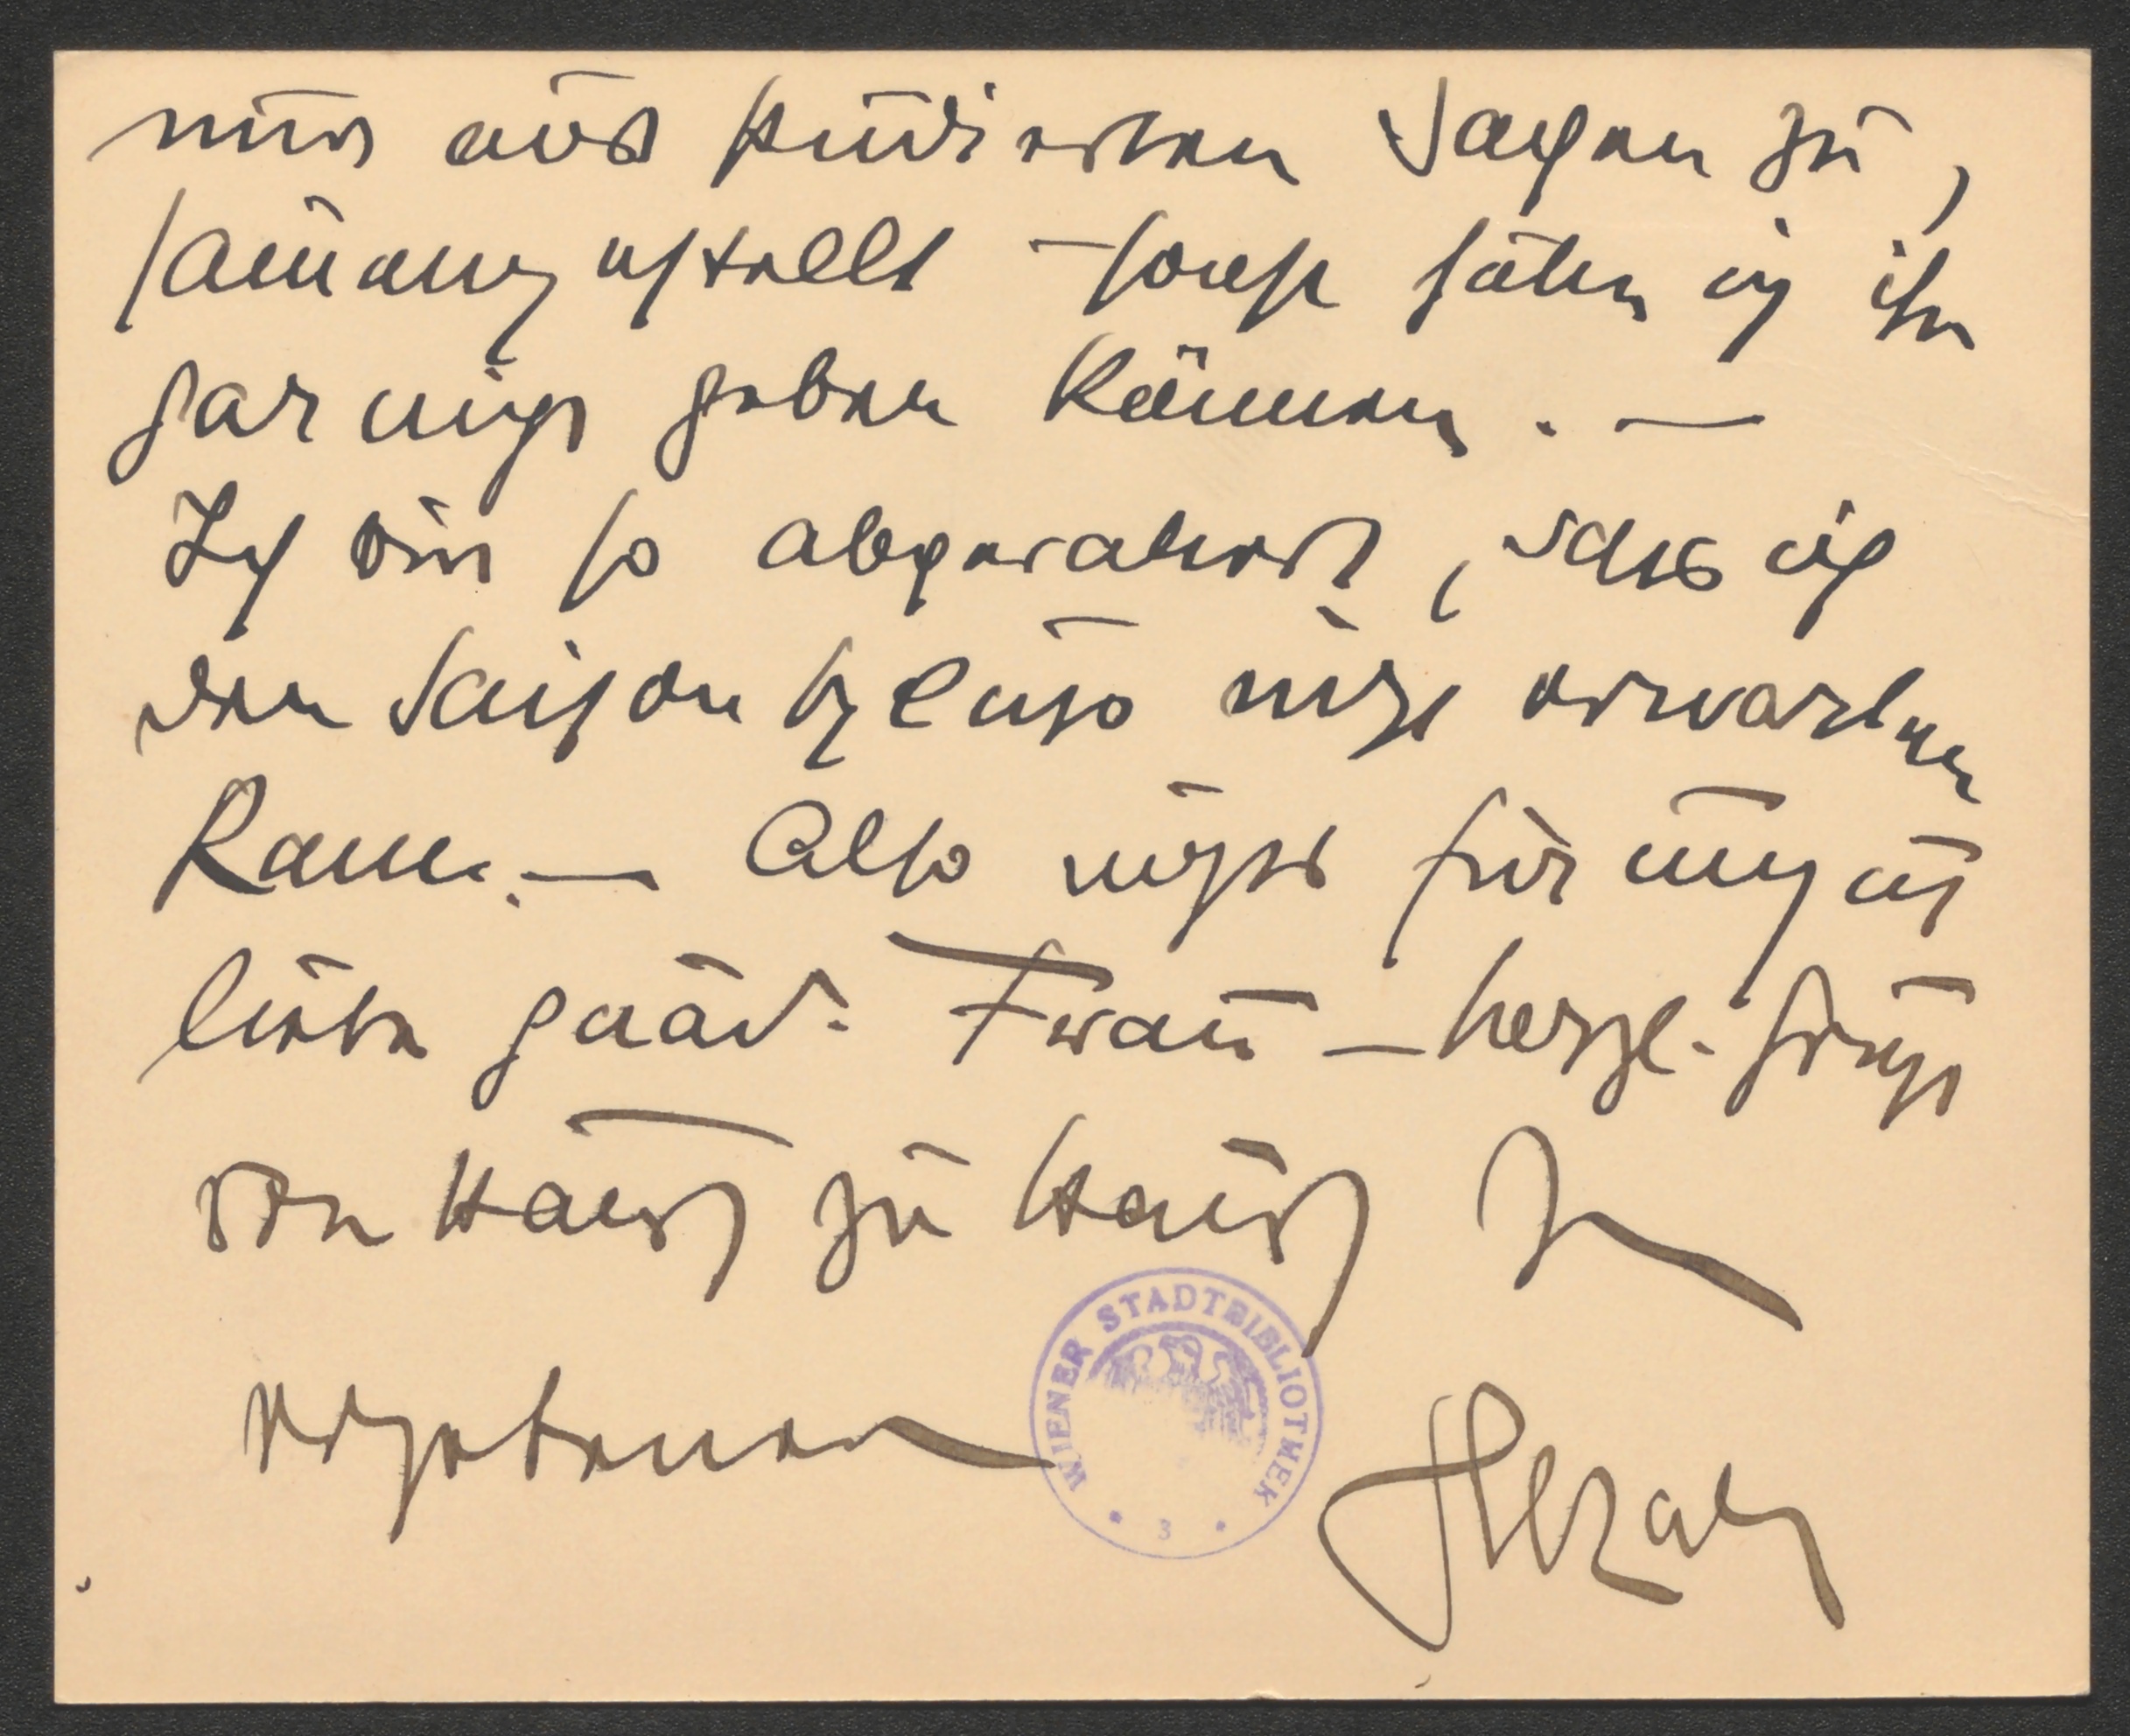 nur aus studierten Sachen zu,
sammengestellt – sonst hätte ich ihn
gar nicht geben können. —
Ich bin so abgerackert, dass ich
den Saisonschluss nicht erwarten
Kann. — Also nichts für ungut
liebe gnäd. Frau – herzl. grüsst
von Haus zu Haus Ihr
ergebener
WIENER STADTBIBLIOTHEK
3